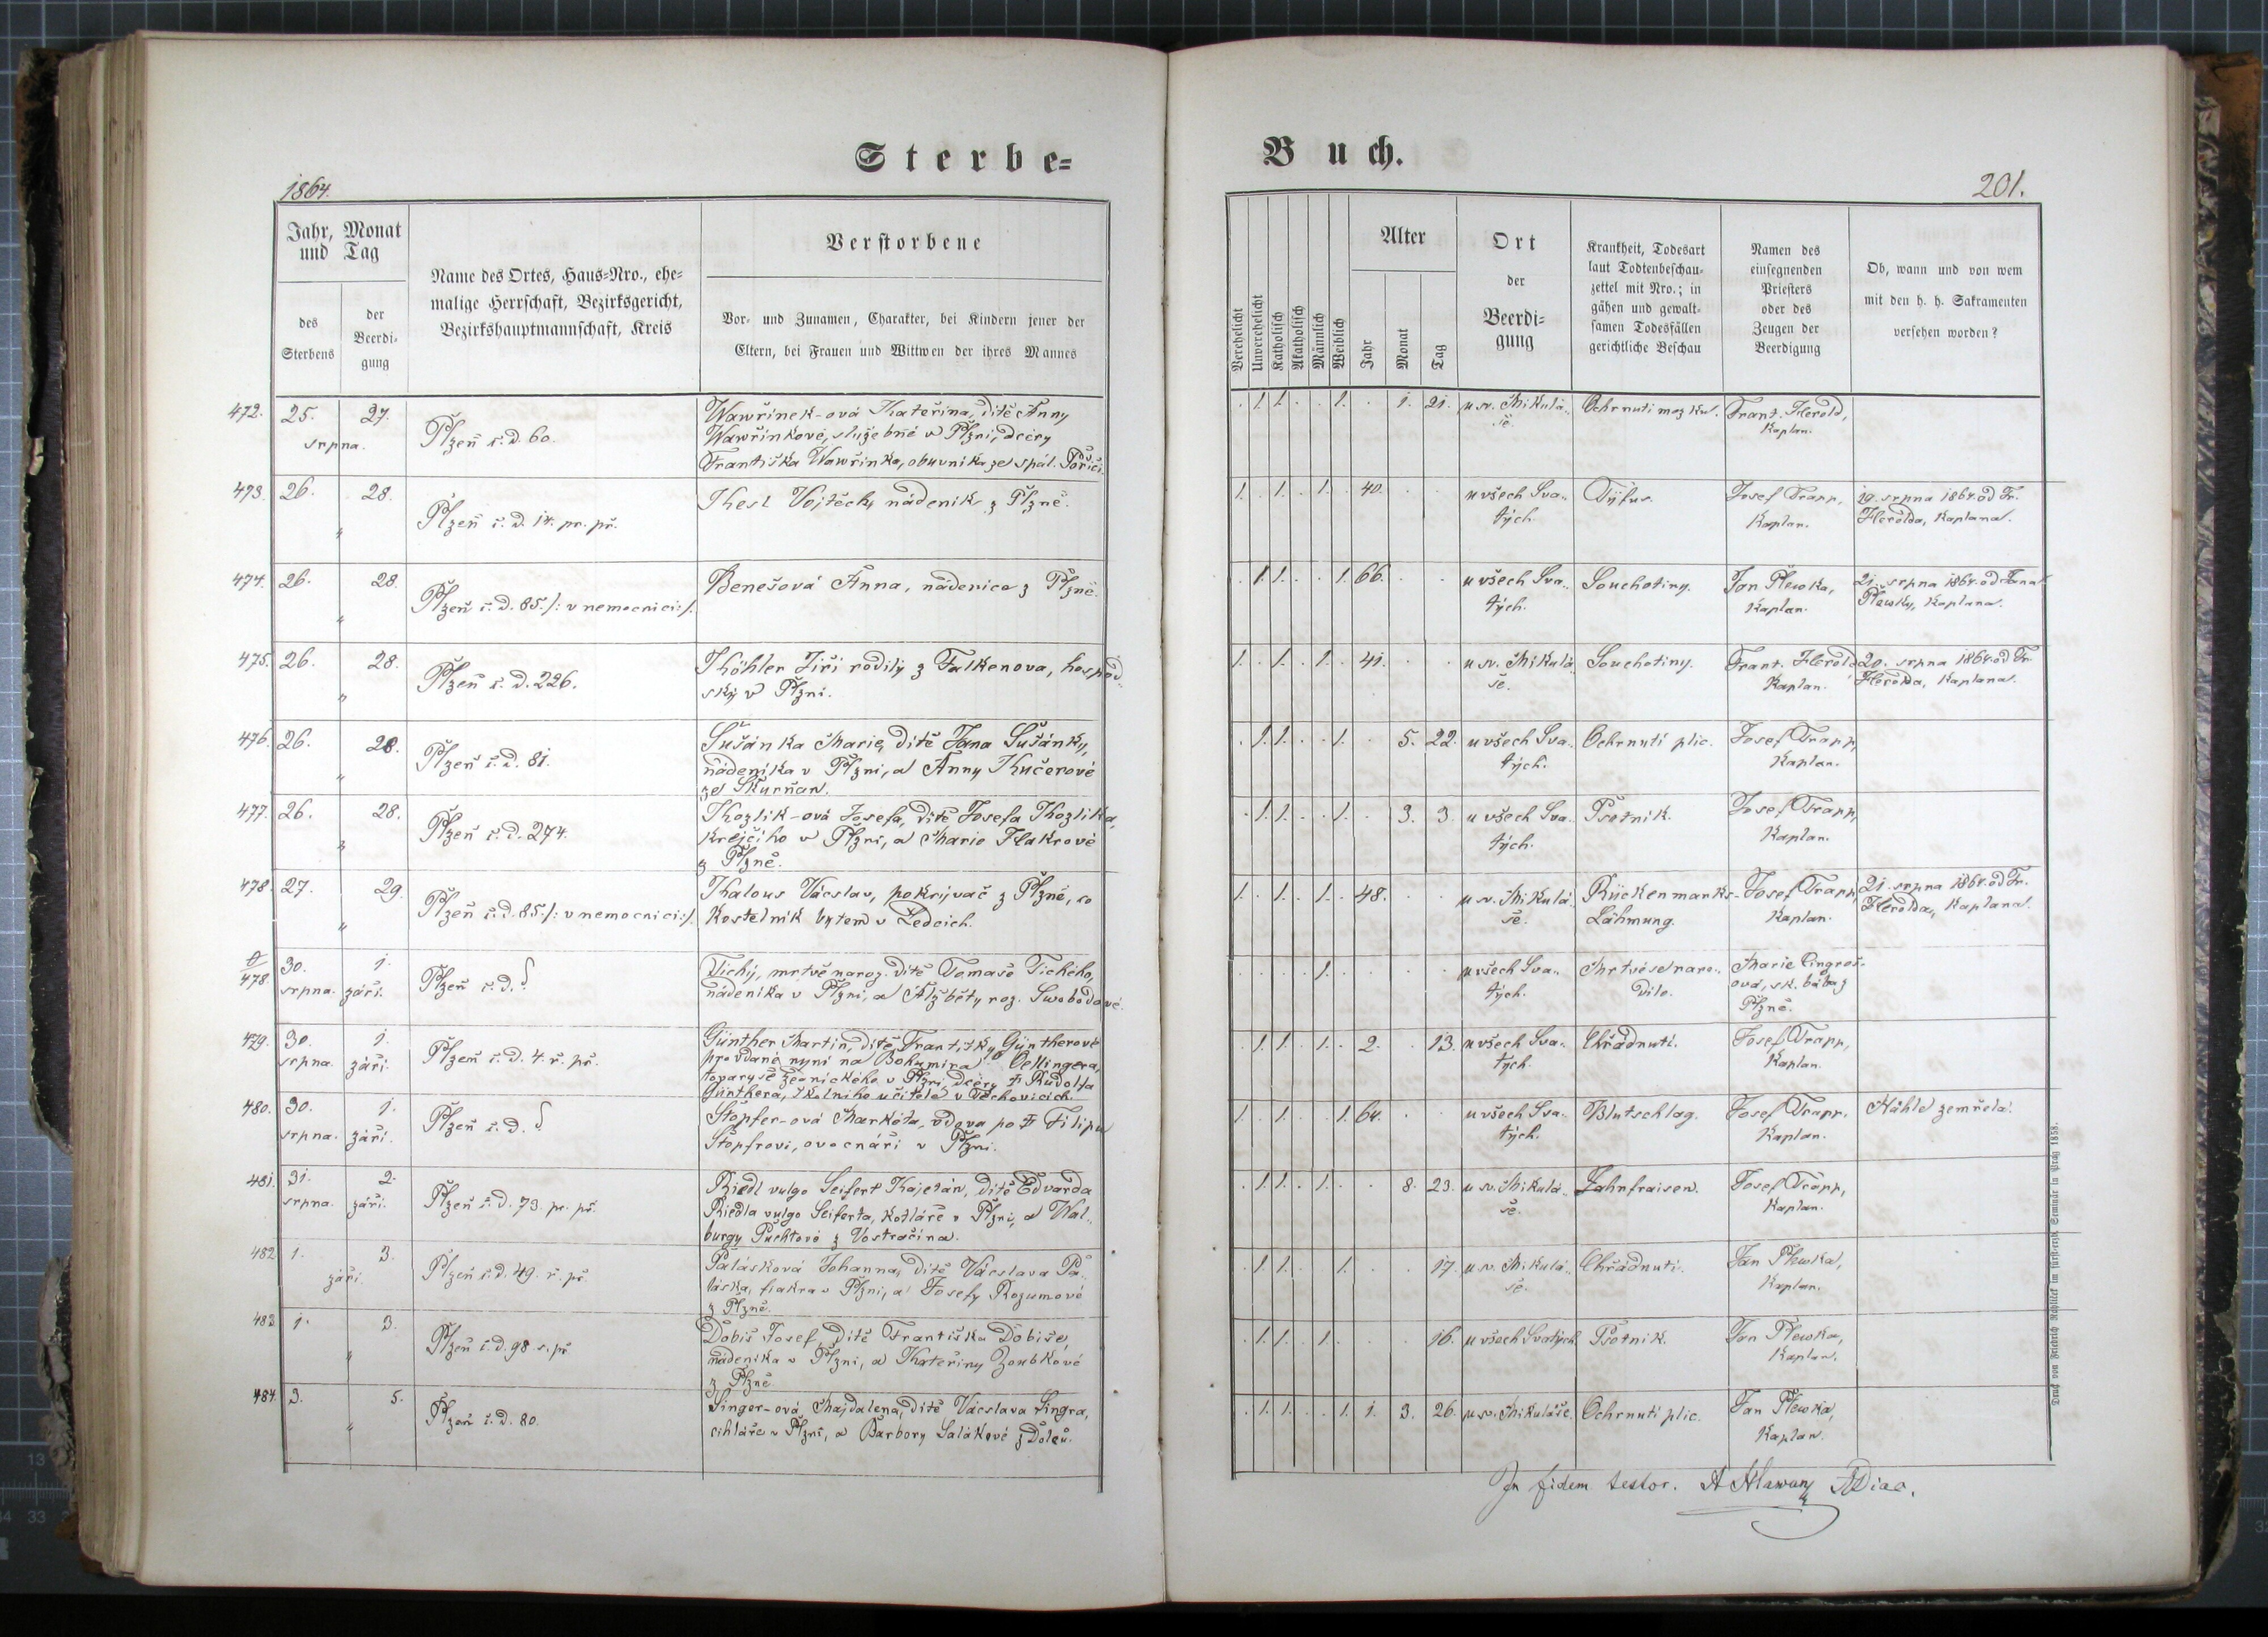 Sterbe=
1864.
Jahr, Monat
und Tag
des
Sterbens
der
Beerdi-
gung
Name des Ortes, Haus=Nro., ehe=
malige Herrschaft, Bezirksgericht,
Bezirkshauptmannschaft, Kreis
Verstorbene
Vor- und Zunamen, Charakter, bei Kindern jener der
Eltern, bei Frauen und Wittwen der ihres Mannes
472. 25. 27.
srpna.
Plzeň č. d. 60.
Wawřinek-ová Kateřina, dítě Anny
Wawřinkové, služebné v Plzni, dcery
Františka Wawřinka, obuvníka ze spál. Poříčí.
473. 26. 28.
"
Plzeň č. d. 14. pr. př.
Kesl Vojtěch, nádeník z Plzně.
474. 26. 28.
"
Plzeň č. d. 85. /: v nemocnici :/.
Benešová Anna, nádenice z Plzně.
475. 26. 28.
"
Plzeň č. d. 226.
Köhler Jiří rodilý z Falkenova, hospod..
ský v Plzni.
476. 26. 28.
"
Plzeň č. d. 81.
Sušánka Marie, dítě Jana Sušánky,
nádeníka v Plzni, a Anny Kučerové
ze Skurňan.
477. 26. 28.
"
Plzeň č. d. 274.
Kozlik-ová Josefa, dítě Josefa Kozlika,
krejčího v Plzni, a Marie Flakrové
z Plzně.
478. 27. 29.
"
Plzeň č. d. 85. /: v nemocnici :/.
Kalous Václav, pokrývač z Plzně, co
kostelník bytem v Ledcích.
478. 30. 1.
srpna. září.
Plzeň č. d.
Tichý, mrtvě naroz. dítě Tomaše Tichého,
nádeníka v Plzni, a Alžběty roz. Swobodové.
479. 30. 1.
srpna. září.
Plzeň č. d. 4. ř. př.
Günther Martin, dítě Františky Güntherové
provdané nyní na Bohumíra Oellingera,
tovaryše v Plzni, dcery † Rudolfa
Günthera, školního učitele v Těchovicích.
480. 30. 1.
srpna. září.
Plzeň č. d.
Stopfer-ová Markéta, vdova po † Filipu
Stopfrovi, ovocnáři v Plzni.
481. 31. 2.
srpna. září.
Plzeň č. d. 73. pr. př.
Riedl vulgo Seifert Kajetán, dítě Edvarda
Riedla vulgo Seiferta, kotláře v Plzni, a Wal..
burgy Puchtové z Vostračína.
482. 1. 3.
září.
Plzeň č. d. 49. ř. př.
Palásková Johanna, dítě Václava Pa..
láska, fiakra v Plzni, a Josefy Rozumové
z Plzně.
483. 1. 3.
"
Plzeň č. d. 98 s. př.
Dobiš Josef, dítě Františka Dobiše,
nádeníka v Plzni, a Kateřiny Zoubkové
z Plzně.
484. 3. 5.
"
Plzeň č. d. 80.
Singer-ová Majdalena, dítě Václava Singra,
cihláře v Plzni, a Barbory Salákové z Dolců.
Buch.
201.
Verehelicht
Unverehelicht
Katholisch
Akatholisch
Männlich
Weiblich
Alter
Jahr
Monat
Tag
Ort
der
Beerdi=
gung
Krankheit, Todesart
laut Todtenbeschau-
zettel mit Nro.; in
gähen und gewalt-
samen Todesfällen
gerichtliche Beschau
Namen des
einsegnenden
Priesters
oder des
Zeugen der
Beerdigung
Ob, wann und von wem
mit den h. h. Sakramenten
versehen worden?
. 1. 1. . . 1. . 1. 21. u sv. Mikulá.. Ochrnutí mozku. Frant. Herold,
še. Kaplan.
1. . 1. . 1. . 40. . . u všech Sva.. Tyfus. Josef Trapp, 19. srpna 1864. od Fr.
tých. Kaplan. Herolda, Kaplana.
. 1. 1. . . 1. 66. . . u všech Sva.. Souchotiny. Jan Plewka, 21. srpna 1864. od Jana
tých. Kaplan. Plewky, Kaplana.
1. . 1. . 1. . 41. . . u sv. Mikulá.. Souchotiny. Frant. Herold, 20. srpna 1864. od Fr.
še. Kaplan. Herolda, Kaplana.
. 1. 1. . . 1. . 5. 22. u všech Sva.. Ochrnutí plic. Josef Trapp,
tých. Kaplan.
. 1. 1. . . 1. . 3. 3. u všech Sva.. Psotník. Josef Trapp,
tých. Kaplan.
1. . 1. . 1. . 48. . . u sv. Mikulá.. Rückenmarks- Josef Trapp, 21. srpna 1864. od Fr.
še. Lähmung. Kaplan. Herolda, Kaplana.
. . . . 1. . . . . u všech Sva.. Mrtvé se naro.. Marie Cingroš-
tých. dilo. ová, zk. bába z
Plzně.
. 1. 1. . 1. . 2. . 13. u všech Sva.. Chřadnutí. Josef Trapp,
tých. Kaplan.
1. . 1. . . 1. 64. . . u všech Sva.. Blutschlag. Josef Trapp, Náhle zemřela.
tých. Kaplan.
. 1. 1. . 1. . . 8. 23. u sv. Mikulá.. Zahnfraisen. Josef Trapp,
še. Kaplan.
. 1. 1. . . 1. . . 17. u sv. Mikulá.. Chřadnutí. Jan Plewka,
še. Kaplan.
. 1. 1. . 1. . . . 16. u všech Svatých Psotník. Jan Plewka,
Kaplan.
. 1. 1. . . 1. 1. 3. 26. u sv. Mikuláše. Ochrnutí plic. Jan Plewka,
Kaplan.
In fidem testor. A Hlawan
Druck von Friedrich Rohliček im fürst-erzb. Seminär in Prag 1858.